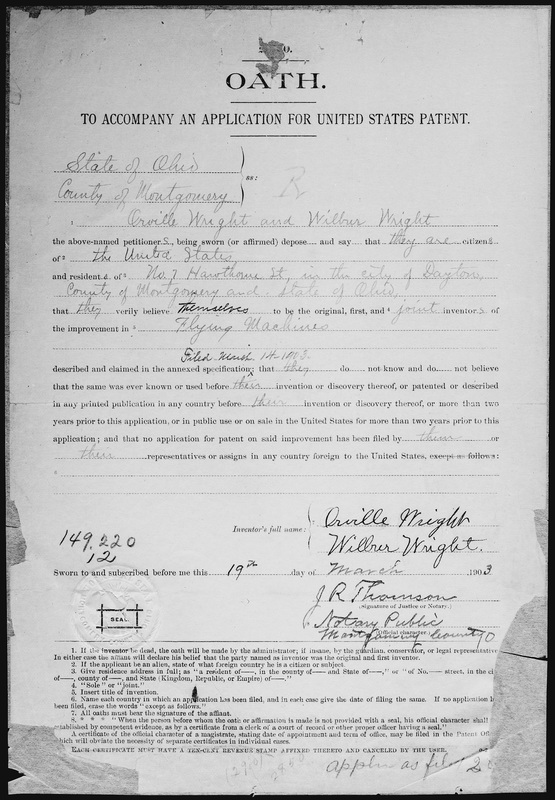 OATH.
TO ACCOMPANY AN APPLICATION FOR UNITED STATES PATENT.
State of Ohio
County of Montgomery
ss:
R
Orville Wright and Wilbur Wright
the above-named petitioners, being sworn (or affirmed) depose and say that they are citizens
of the United States
and resident of No. 7 Hawthorne St. in the city of Dayton,
County of Montgomery and State of Ohio,
that they verily believe themselves to be the original, first, and joint inventors of
the improvement in Flying Machines
Filed March 14 1903
described and claimed in the annexed specification; that they do not know and do not believe
that the same was ever known or used before their invention or discovery thereof, or patented or described
in any printed publication in any country before their invention or discovery thereof, or more than two
years prior to this application, or in public use or on sale in the United States for more than two years prior to this
application; and that no application for patent on said improvement has been filed by them or
their representatives or assigns in any country foreign to the United States, except as follows:
Inventor's full name:
Orville Wright
Wilbur Wright.
149,220
12
Sworn to and subscribed before me this 19th day of March 1903
J R Thomson
(Signature of Justice or Notary.)
SEAL.
Notary Public
Montgomery County O
(Official character.)
1. If the inventor be dead, the oath will be made by the administrator; if insane, by the guardian, conservator, or legal representative.
In either case the affiant will declare his belief that the party named as inventor was the original and first inventor.
2. If the applicant be an alien, state of what foreign country he is a citizen or subject.
3. Give residence address in full; as "a resident of —, in the county of — and State of —," or "of No. — street, in the ci
of —, county of —, and State (Kingdom, Republic, or Empire) of —."
4. "Sole" or "joint."
5. Insert title of invention.
6. Name each country in which an application has been filed, and in each case give the date of filing the same. If no application
been filed, erase the words "except as follows."
7. All oaths must bear the signature of the affiant.
8. * * * "When the person before whom the oath or affirmation is made is not provided with a seal, his official character shall
established by competent evidence, as by a certificate from a clerk of a court of record or other proper officer having a seal."
A certificate of the official character of a magistrate, stating date of appointment and term of office, may be filed in the Patent Off
which will obviate the necessity of separate certificates in individual cases.
EACH CERTIFICATE MUST HAVE A TEN-CENT REVENUE STAMP AFFIXED THERETO AND CANCELED BY THE USER.
appln as filed